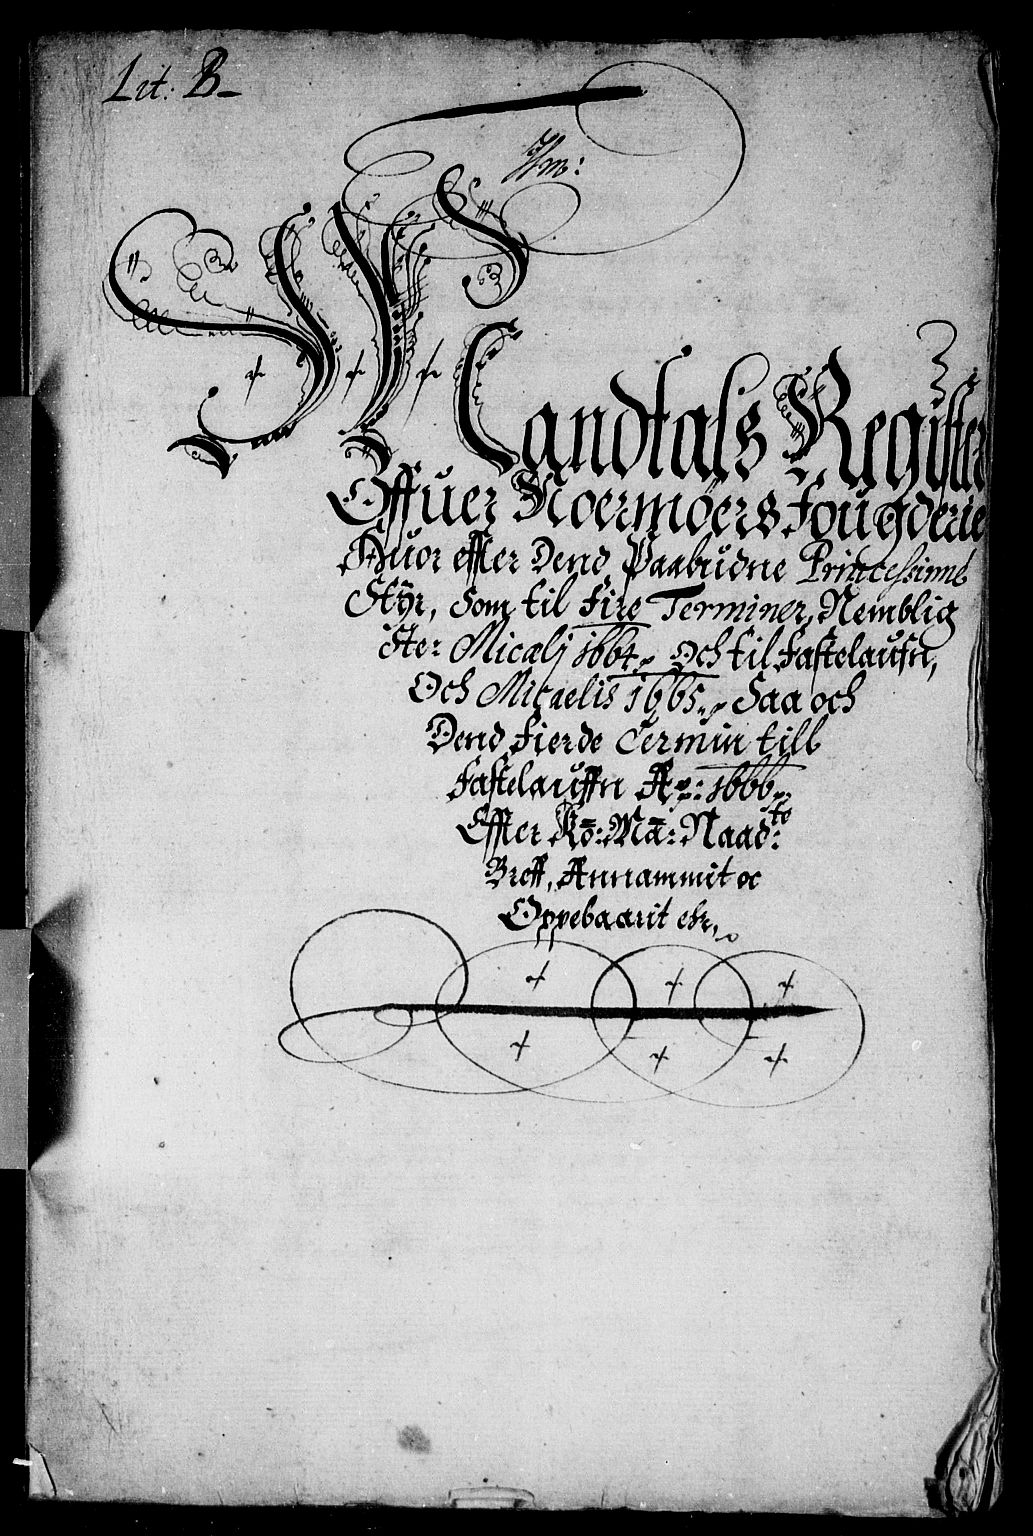 Lit: B
Mandtals Register
Offuer Noermøers Fougderie
Huor effter Dend Paabudne Princessinne
Styr, Som til Fire Terminer, Nemblig
ster Micælj 1664. Och til Fastelaufn,
Och Micaelis 1665. Saa och
Dend Fierde Termin till
Fastelauffn Ao: 1666.
Effter Ko: Ma: Naadte
Breff, Annammit oc
Oppebaarit ehr,